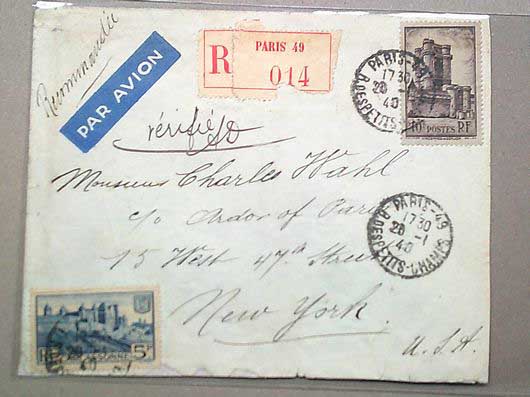 Recommandée
PAR AVION
R
PARIS 49
014
PARIS-49
R. DES PETITS
1730
20-1
40
10F POSTES RF
vérifié
Monsieur Charles Wahl
c/o Ardor of Paris
15 West 47th Street
New York
U.S.A.
PARIS-49
R. DES PETITS-CHAMPS
1730
20-1
40
RF
5F